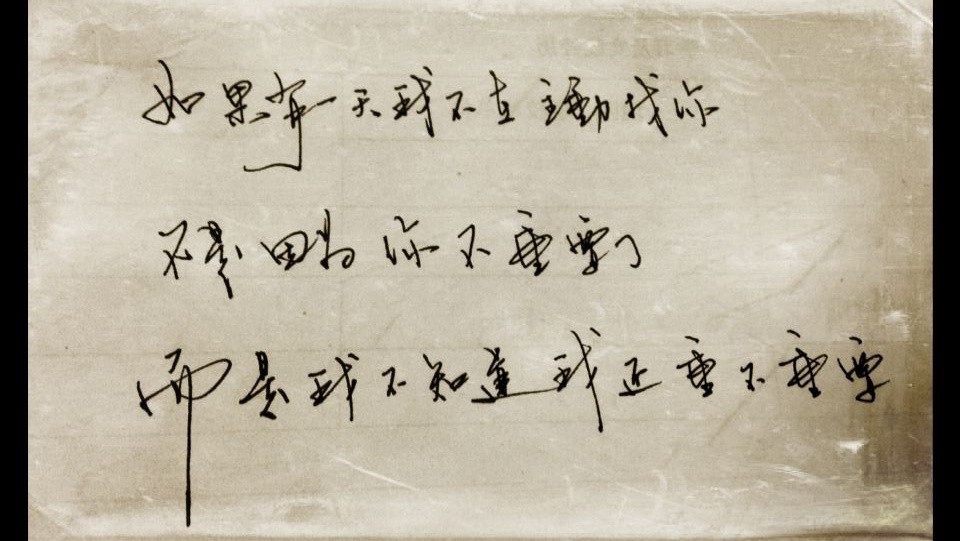 如果有一天我不在主動找你
不是因為你不重要了
而是我不知道我还重不重要